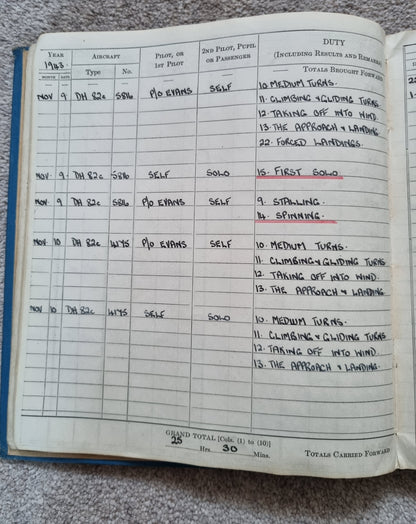 YEAR AIRCRAFT PILOT, OR 2ND PILOT, PUPIL DUTY
1943. 1ST PILOT OR PASSENGER (INCLUDING RESULTS AND REMARKS)
MONTH DATE Type No. — — TOTALS BROUGHT FORWARD
NOV 9. DH 82c 5816 P/O EVANS SELF 10. MEDIUM TURNS.
11. CLIMBING & GLIDING TURNS
12. TAKING OFF INTO WIND.
13. THE APPROACH & LANDING
22. FORCED LANDINGS.
NOV. 9. DH 82c. 5816 SELF SOLO 15. FIRST SOLO
NOV 9. DH 82c 5816 P/O EVANS SELF 9. STALLING.
14. SPINNING.
NOV 10 DH 82c 4175 P/O EVANS SELF 10. MEDIUM TURNS.
11. CLIMBING & GLIDING TURNS
12. TAKING OFF INTO WIND.
13. THE APPROACH & LANDING
NOV 10 DH 82c 4175 SELF SOLO 10. MEDIUM TURNS.
11. CLIMBING & GLIDING TURNS
12. TAKING OFF INTO WIND.
13. THE APPROACH & LANDING.
GRAND TOTAL [Cols. (1) to (10)]
25 Hrs. 30 Mins. TOTALS CARRIED FORWARD